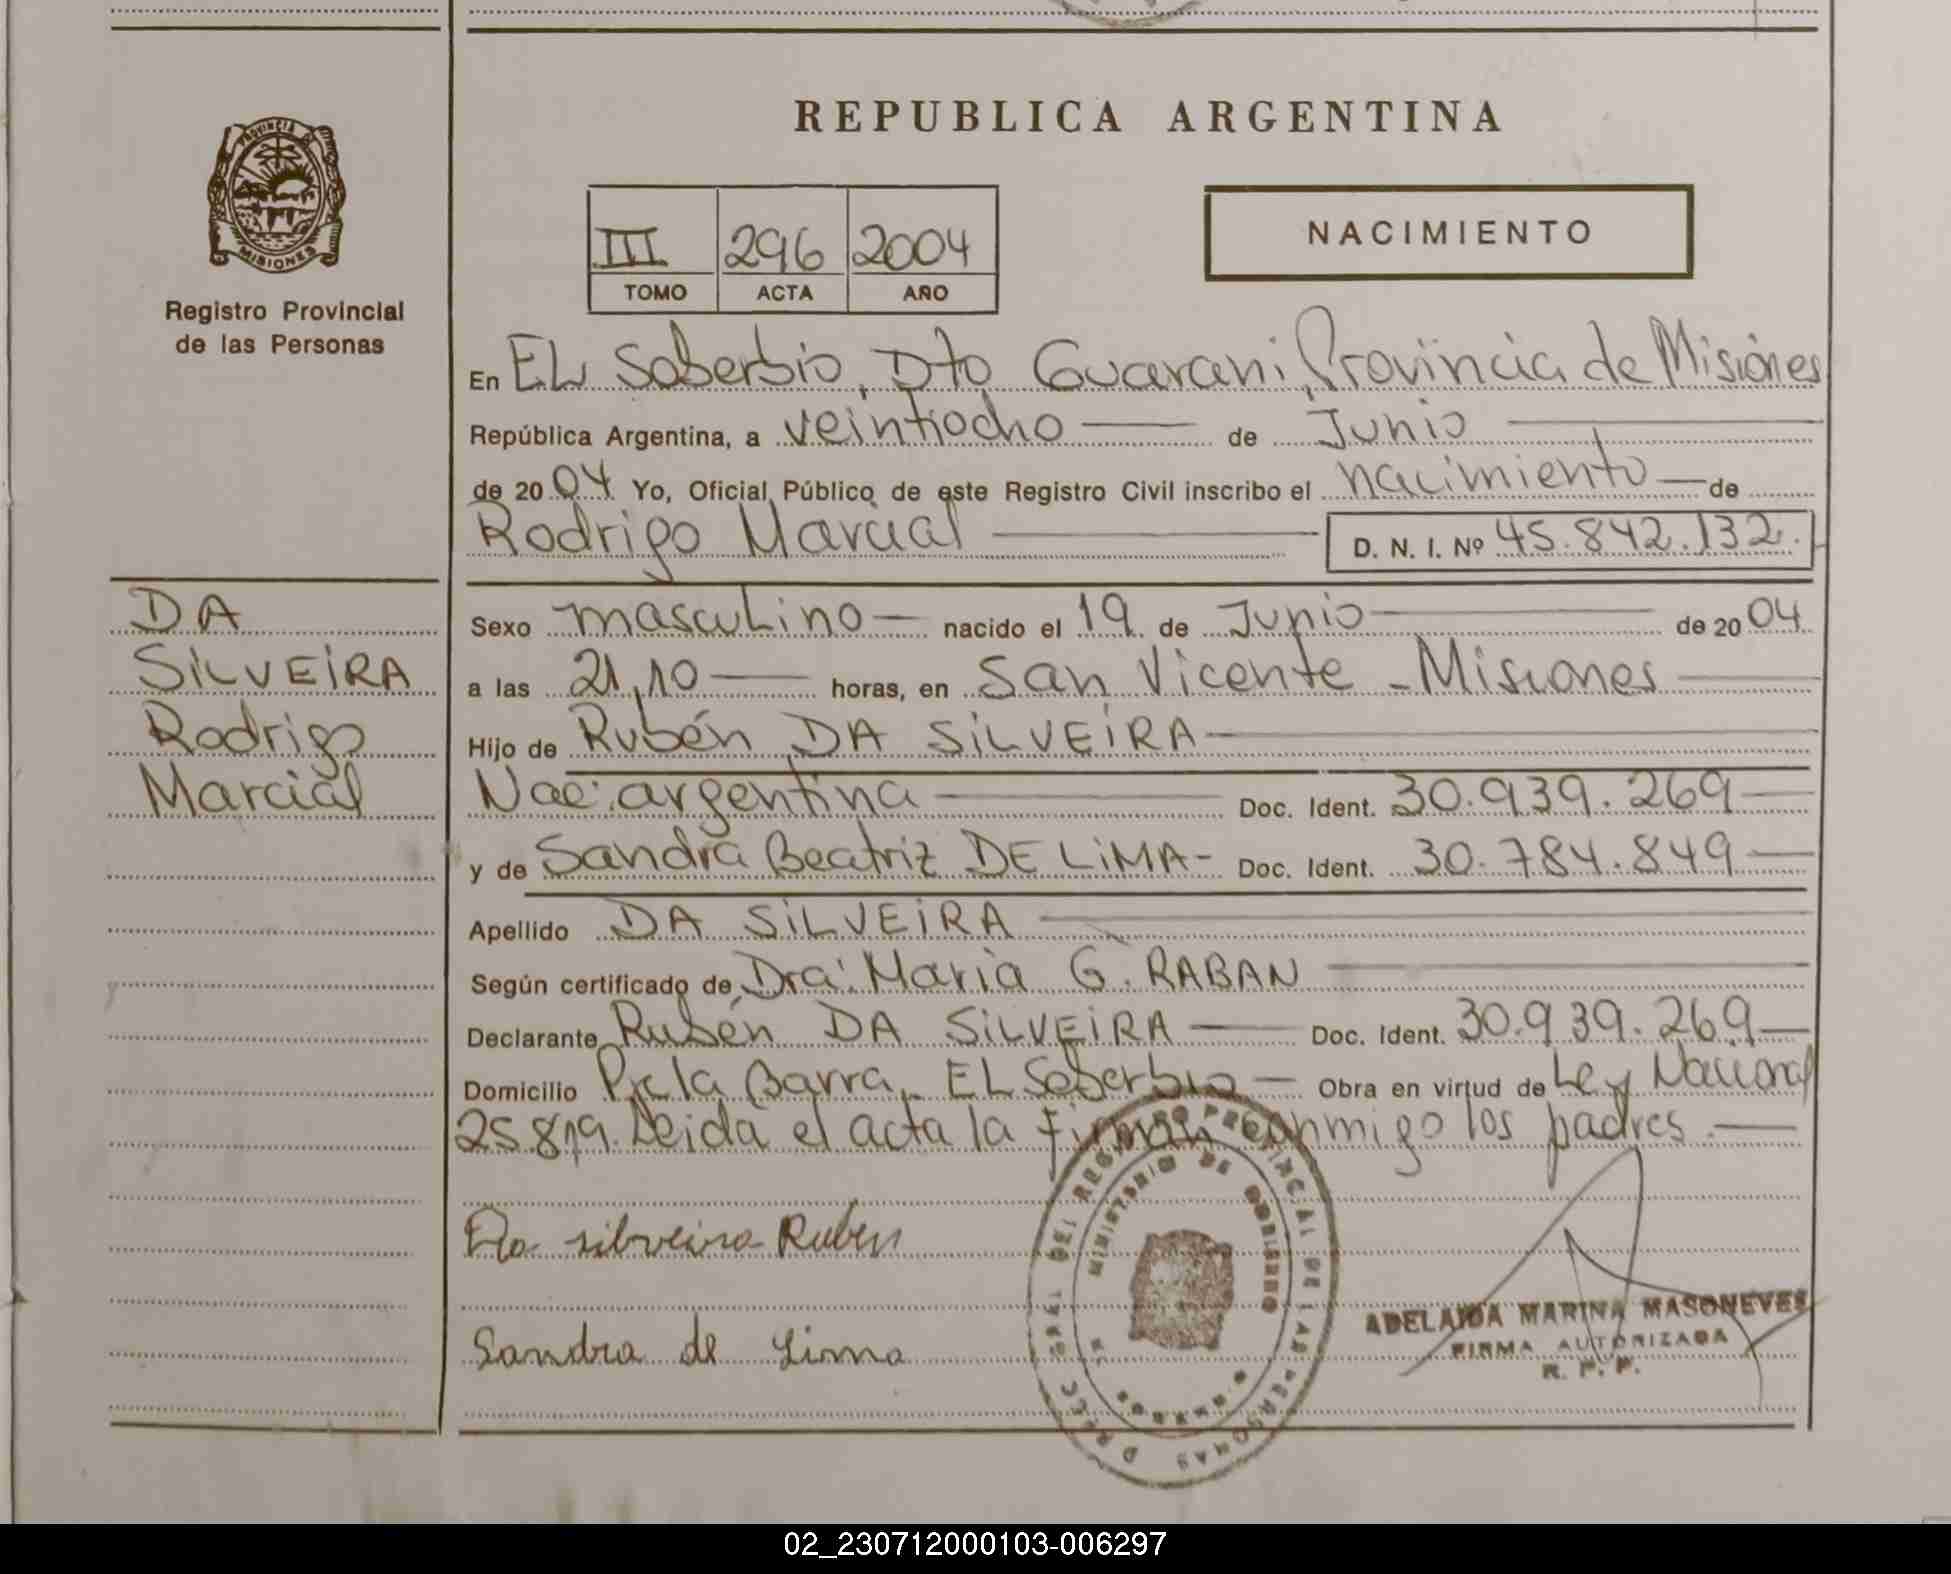 REPUBLICA ARGENTINA
PROVINCIA DE
MISIONES
Registro Provincial
de las Personas
III 296 2004
TOMO ACTA AÑO
NACIMIENTO
En EL Soberbio, Dto Guarani, Provincia de Misiones
República Argentina, a veintiocho — de Junio —
de 2004 Yo, Oficial Público de este Registro Civil inscribo el nacimiento — de
Rodrigo Marcial — D. N. I. Nº 45.842.132.
DA
SILVEIRA
Rodrigo
Marcial
Sexo masculino — nacido el 19 de Junio — de 2004
a las 21,10 — horas, en San Vicente - Misiones —
Hijo de Rubén DA SILVEIRA —
Nac: argentina — Doc. Ident. 30.939.269 —
y de Sandra Beatriz DE LIMA - Doc. Ident. 30.784.849 —
Apellido DA SILVEIRA —
Según certificado de Dra: Maria G. RABAN —
Declarante Rubén DA SILVEIRA — Doc. Ident. 30.939.269 —
Domicilio Pje la Barra, EL Soberbio — Obra en virtud de Ley Nacional
25.819. Leida el acta la firman conmigo los padres. —
Da silveira Ruben
Sandra de Lima
DEL REGISTRO PROVINCIAL DE LAS PERSONAS
MINISTERIO DE GOBIERNO
ADELAIDA MARINA MASONEVES
FIRMA AUTORIZADA
R. P. P.
02_230712000103-006297